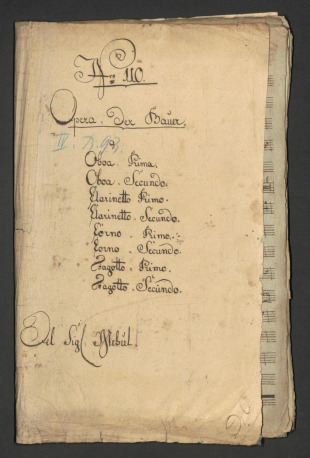 No 110.
Opera. Der Bauer.
Oboa Prima.
Oboa. Secundo.
Clarinetto Primo.
Clarinetto. Secundo.
Corno. Primo.
Corno. Secundo.
Fagotto. Primo.
Fagotto. Secundo.
Del Sigl. Mehül.